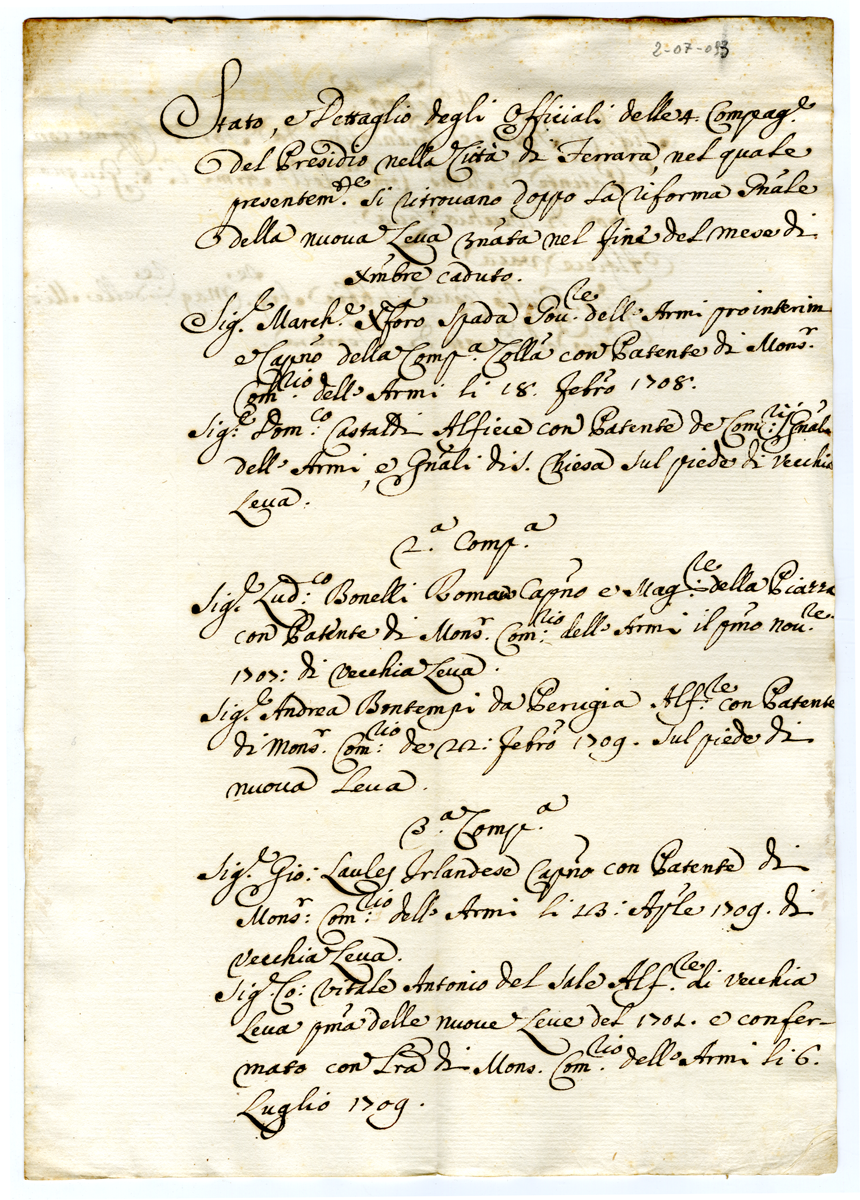 2-07-093
Stato, e Dettaglio degli Officiali delle 4. Compag.e
del Presidio nella Città di Ferrara, nel quale
presentem.te si ritrovano doppo la riforma Gnãle
della nuova Leva 3nata nel fine del mese di
Xmbre caduto.
Sig.r March.e Xforo Spada Gov.re dell'Armi prointerim
e Capnõ della Comp.a Collã con Patente di Mons.r
Com.rio dell'Armi li 18. Febrõ 1708.
Sig.r Dom.co Castaldi Alfiere con Patente de Com.rij Gnãle
dell'Armi, e Gnãli di S. Chiesa sul piede di Vecchia
Leva.
2.a Comp.a
Sig.r Lud.co Bonelli Romão Capnõ e Mag.re della Piazza
con Patente di Mons.r Com.rio dell'Armi il pmõ Nov.re
1707: di Vecchia Leva.
Sig.r Andrea Bontempi da Perugia Alf.re con Patente
di Mons.r Com.rio de 22: Febrõ 1709. sul piede di
nuova Leva.
3.a Comp.a
Sig.r Gio: Laules Irlandese Capnõ con Patente di
Mons.r Com.rio dell'Armi li 23: Aple 1709. di
Vecchia Leva.
Sig.r Co: Vitale Antonio del Sale Alf.re di Vecchia
Leva pmã delle nuove Leve del 1701. e confer-
mato con Lrã di Mons. Com.rio dell'Armi li 6.
Luglio 1709.